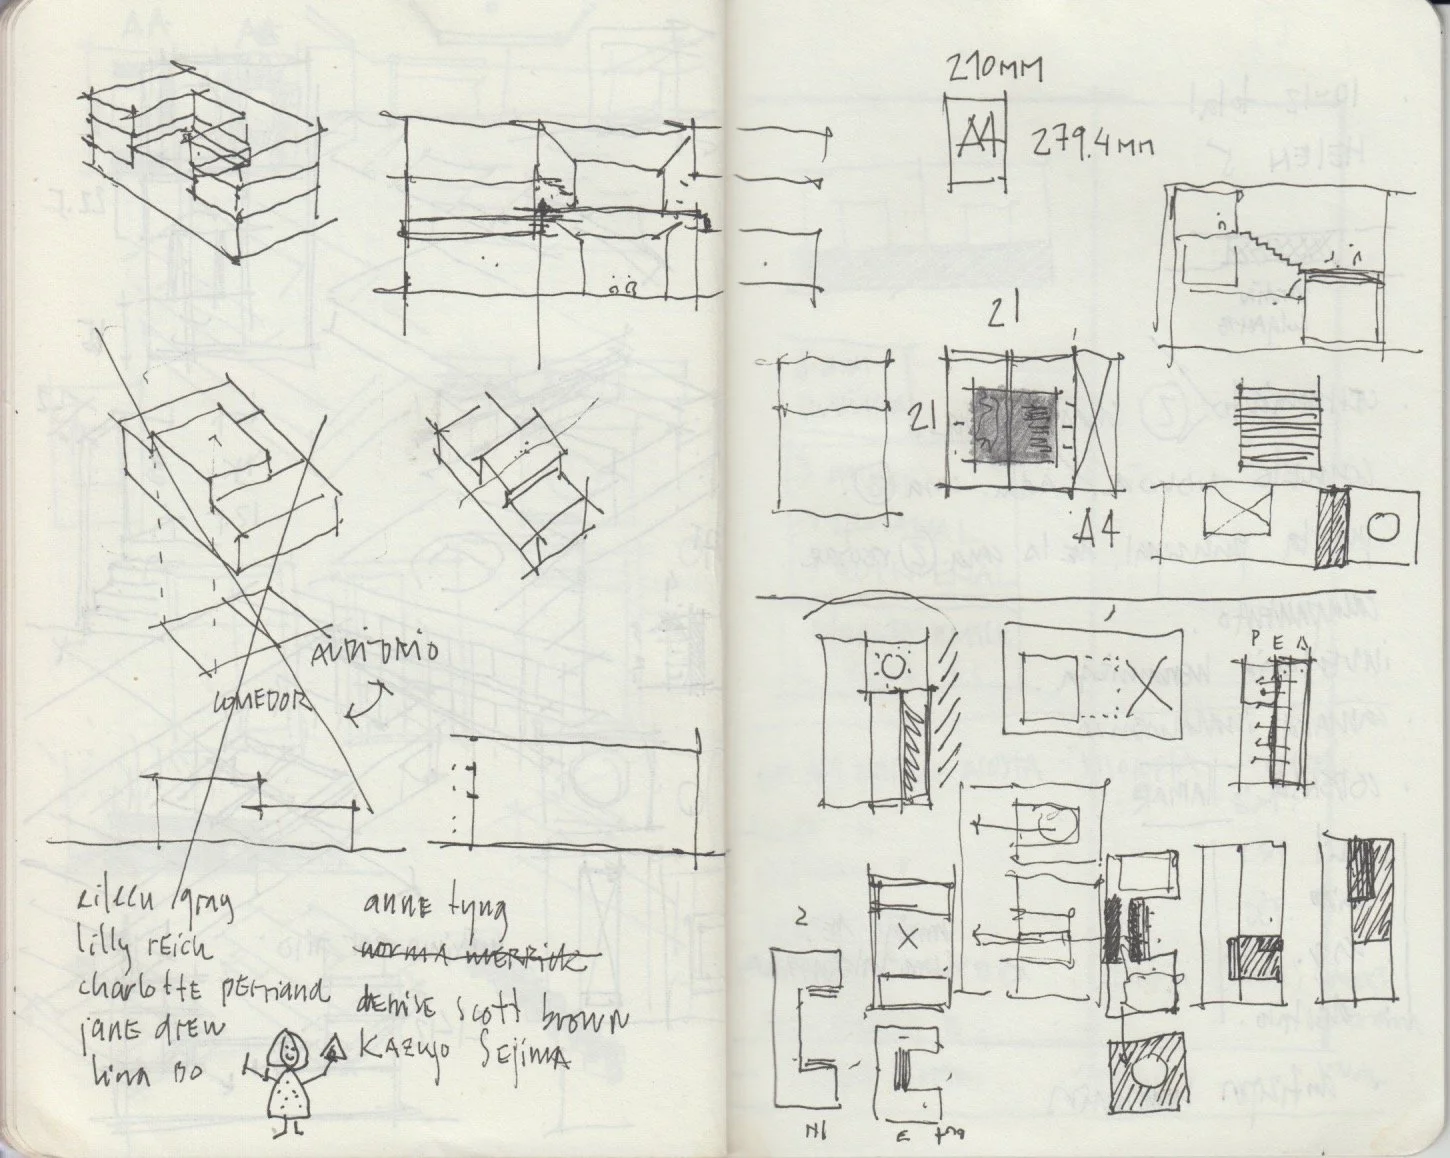 AUDITORIO
COMEDOR
eileen gray
lilly reich
charlotte perriand
jane drew
lina BO
anne tyng
norma merrick
denise scott brown
Kazuyo Sejima
210mm
A4
279.4mm
21
21
A4
P E A
2
N1
E